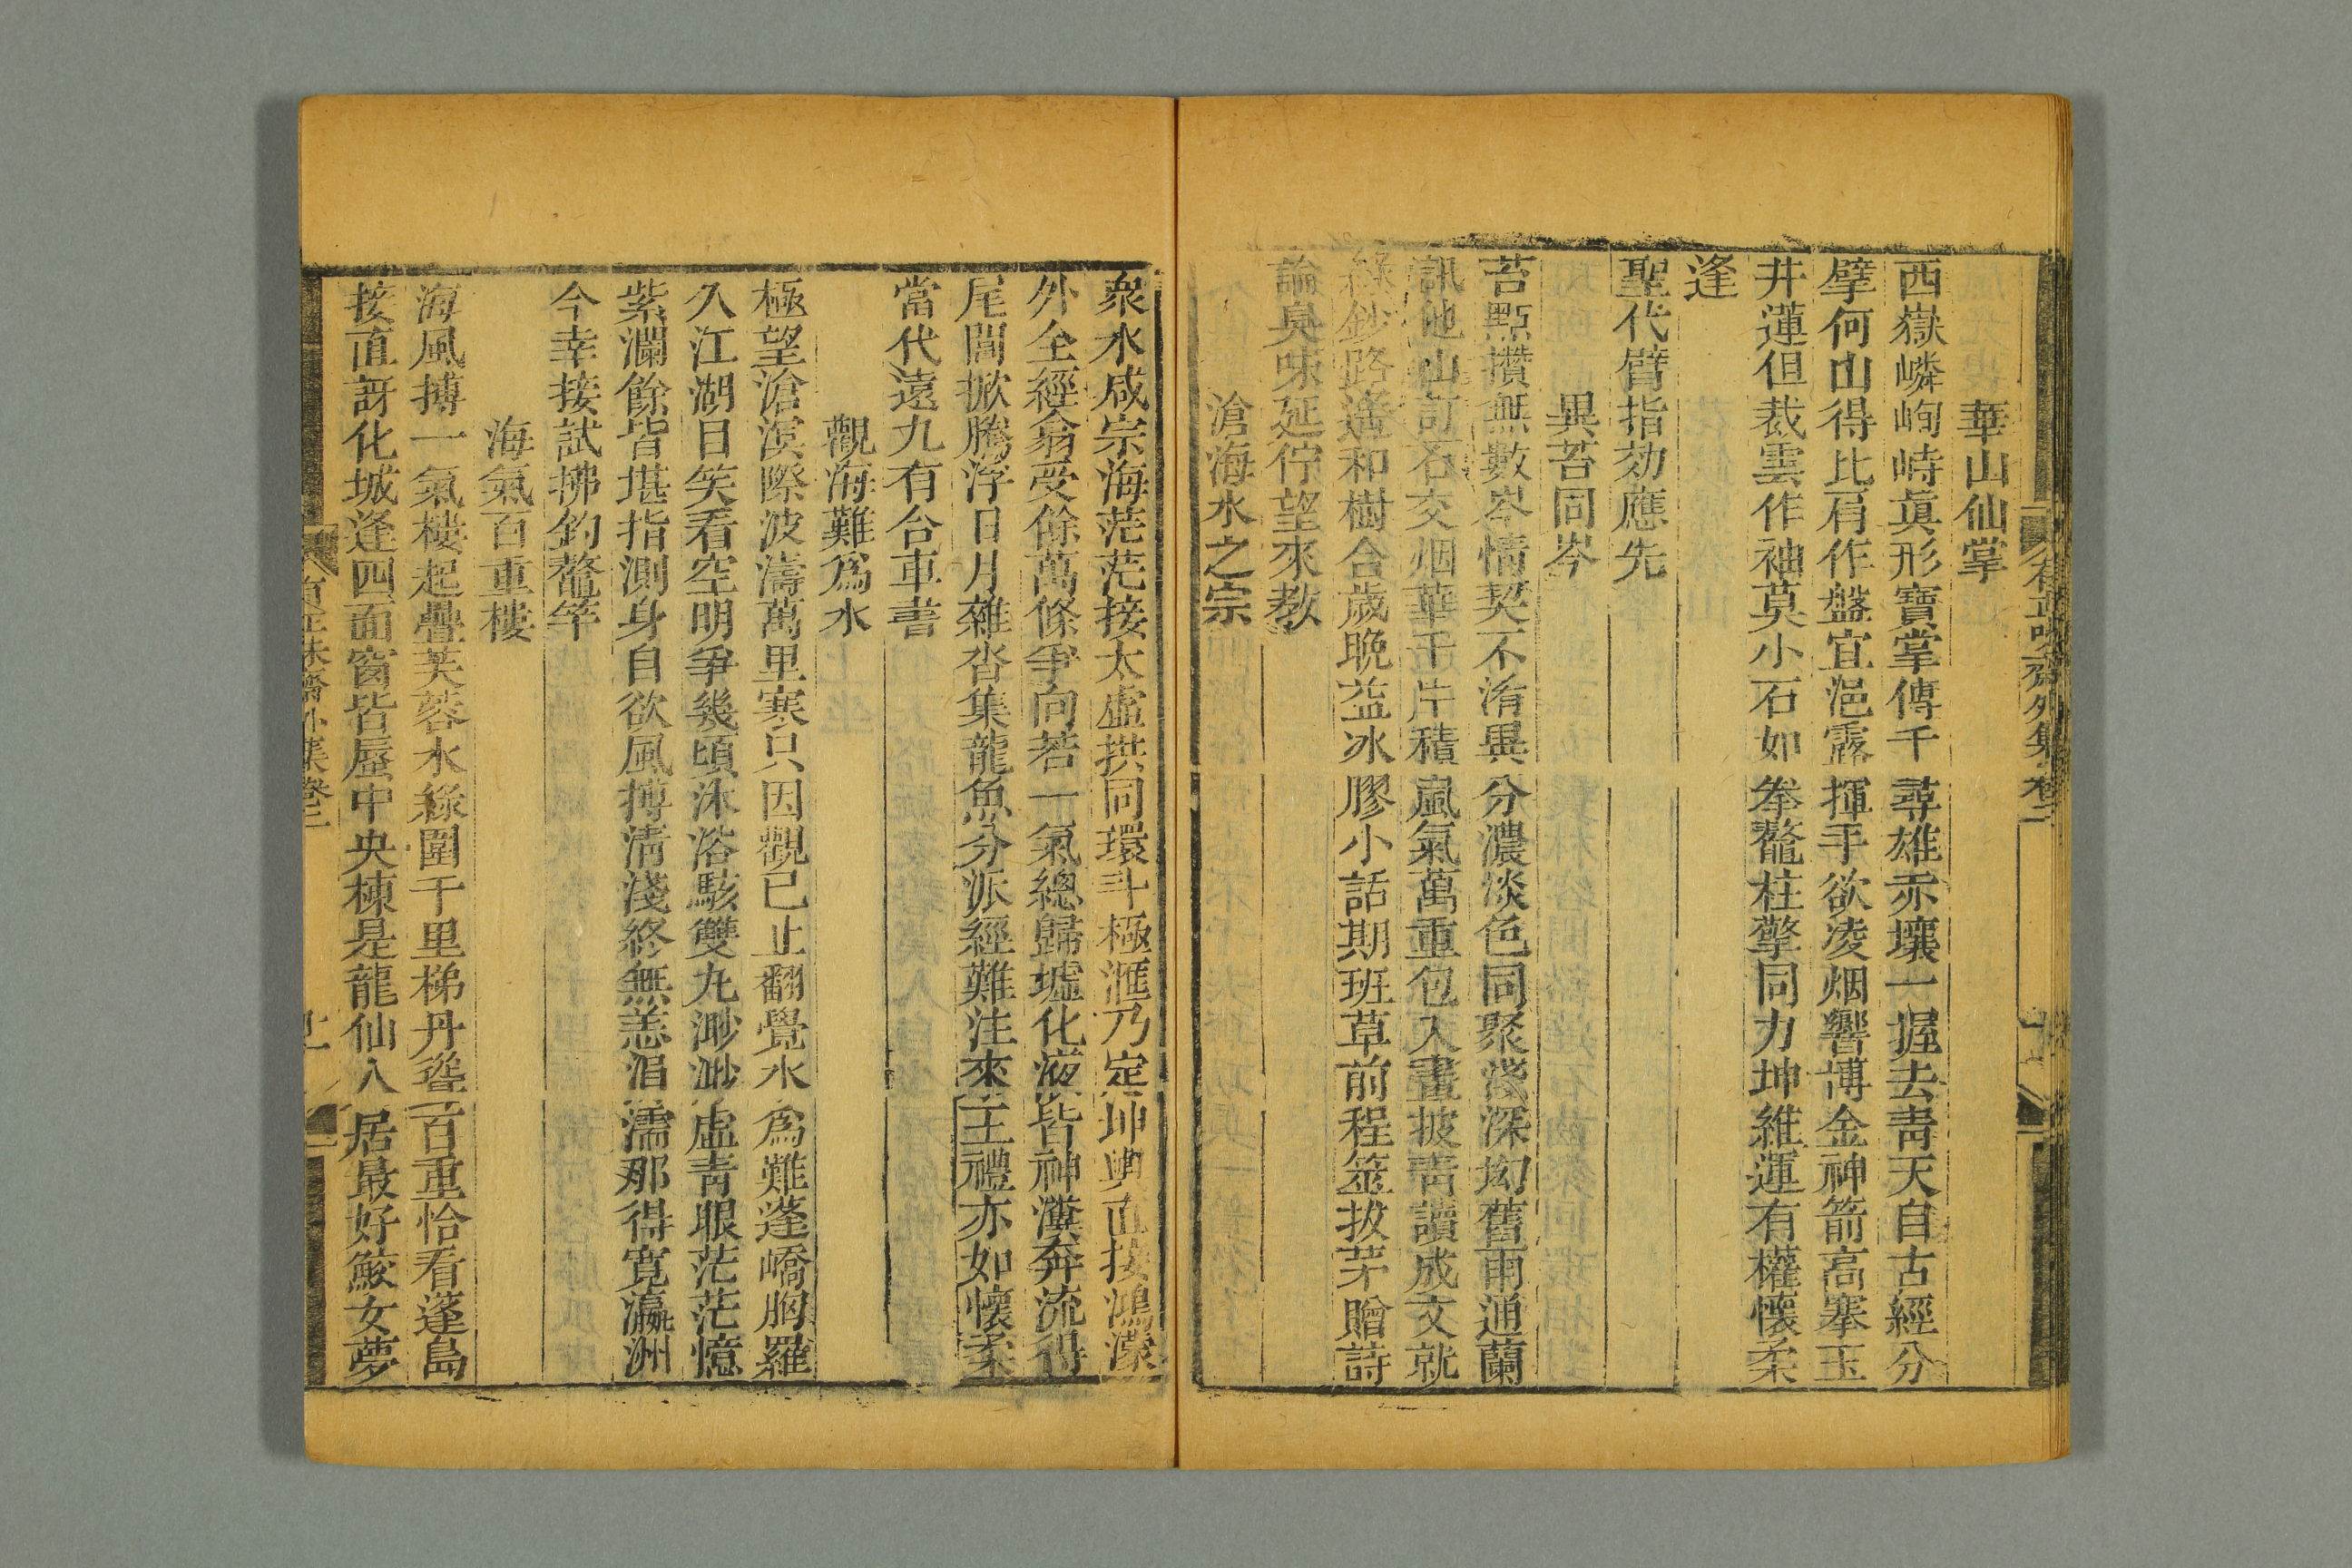 華山仙掌
西嶽嶙峋峙真形寶掌傳千尋雄亦壤一握去靑天自古經分
擘何山得比肩作盤宜浥露揮手欲凌烟響博金神箭高搴玉
井蓮但裁雲作袖莫小石如拳鼇柱擎同力坤維運有權懷柔
逢
聖代臂指効應先
異苔同岑
苔點攢無數岑情契不淆異分濃淡色同聚淺深坳舊雨通蘭
訊他山訂石交烟華千片積嵐氣萬重包入畫披靑讀成文就
綠鈔路遙和樹合歲晚益冰膠小話期班草前程筮拔茅贈詩
論臭味延佇望來教
滄海水之宗
衆水咸宗海茫茫接太虛拱同環斗極滙乃定坤輿直接鴻濛
外全經翕受餘萬條爭向若一氣總歸墟化液皆神瀵奔流得
尾閭掀騰浮日月雜沓集龍魚分派經難注來王禮亦如懷柔
當代遠九有合車書
觀海難爲水
極望滄溟際波濤萬里寒只因觀已止翻覺水爲難蓬嶠胸羅
久江湖日笑看空明爭幾頃沐浴駭雙丸渺渺虛靑眼茫茫憶
紫瀾餘皆堪指測身自欲風摶淸淺終無恙涓濡那得寬瀛洲
今幸接試拂釣鼇竿
海氣百重樓
海風摶一氣樓起疊芙蓉水綠圍千里梯丹聳百重恰看蓬島
接直訝化城逢四面窗皆蜃中央棟是龍仙人居最好鮫女夢